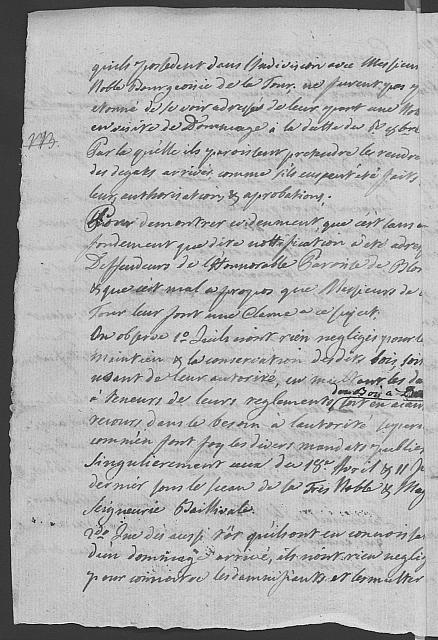 qu'ils possedent dans l'indivision avec Messieurs
Noble Bourgeoisie de la Tour, ne furent pas p
etonné de se voir adresser de leur part une No
en suite de Dommage à la datte du 8e 8bre
173.
Par laquelle ils paroissent pretendre les rendre
des degats arrivés comme s'ils eussent été faits
leur authorisation & aprobations.
Pour demontrer evidemment que c'est sans
fondement que dite nottification a été adres
Deffendeurs de l'Honnorable Paroisse de Blo
& que c'est mal a propos que Messieurs de
Tour leur font une Clame a ce sujet.
On observe 1o. Qu'ils n'ont rien negligés pour le
maintien & la conservation desdits bois, soit
usant de leur autorité, en
à teneurs de leurs reglements, soit en aiant
recours dans le besoin à l'autorité superi
comme en font foy les divers mandats publies
singulierement ceux du 18e Avril & 11 Ju
dernier sous le sceau de la Très Noble & Mag
Seigneurie Baillivale.
2do. Que dès aussi tôt qu'ils ont eu connoissa
d'un dommage arrivé, ils n'ont rien neglig
pour connoitre les damnifiants et les multer